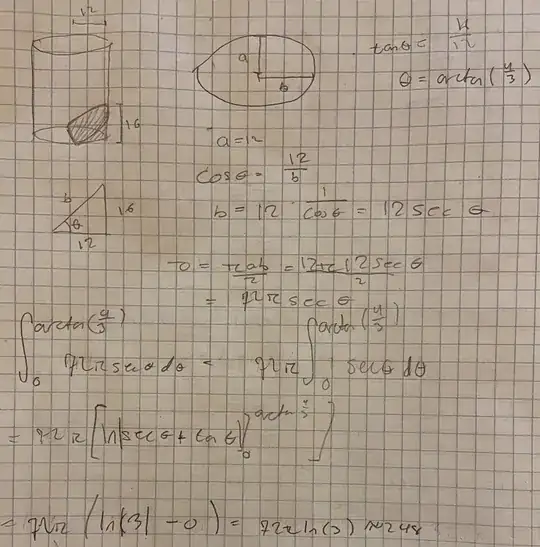 12
16
a
b
tanθ = 4/12
θ = arcta(4/3)
a=12
cosθ = 12/b
b = 12 · 1/cosθ = 12 sec θ
b
θ
16
12
= πab/2 = 12π12secθ/2
= 72π sec θ
∫₀^arcta(4/3) 72π secθ dθ = 72π ∫₀^arcta(4/3) secθ dθ
= 72π [ln|secθ + taθ|]₀^arcta 4/3
= 72π (ln|3| - 0) = 72π ln(3) ≈ 248